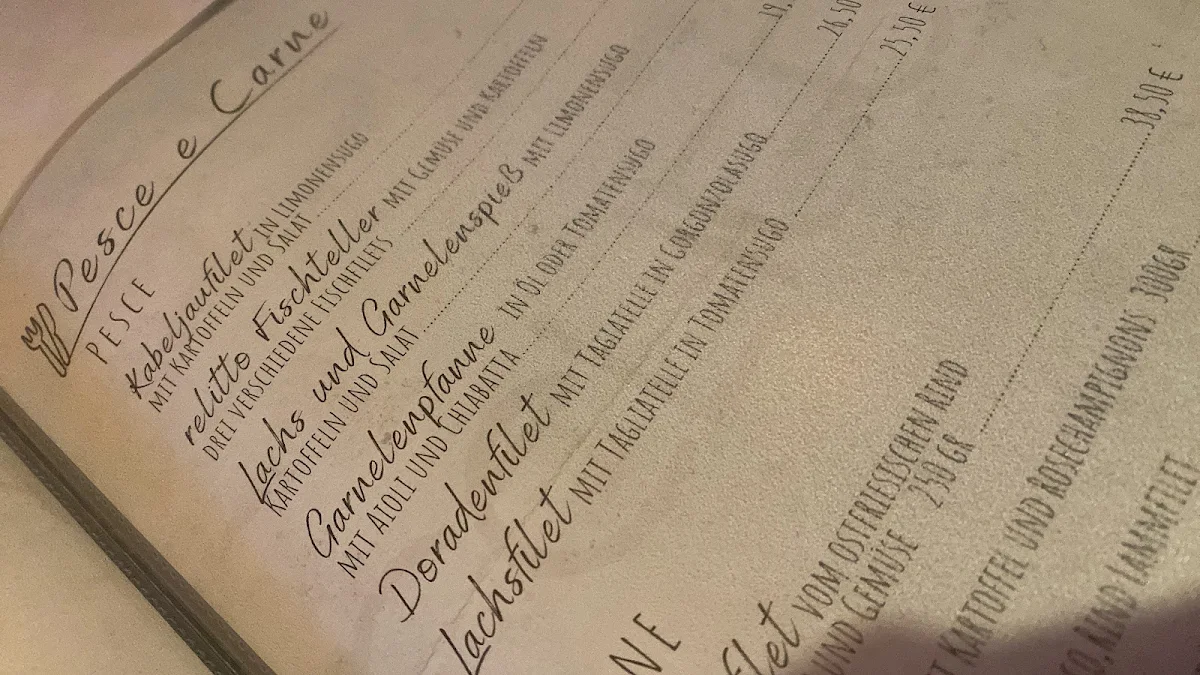 Pesce e Carne
PESCE
Kabeljaufilet IN LIMONENSUGO
MIT KARTOFFELN UND SALAT
relitto Fischteller MIT GEMÜSE UND KARTOFFELN
DREI VERSCHIEDENE FISCHFILETS
Lachs und Garnelenspieß MIT LIMONENSUGO
KARTOFFELN UND SALAT
Garnelenpfanne IN ÖL ODER TOMATENSUGO
MIT AIOLI UND CHIABATTA 19,
Doradenfilet MIT TAGIATELLE IN GORGONZOLASUGO 26,50
Lachsfilet MIT TAGIATELLE IN TOMATENSUGO 25,50 €
NE
filet VOM OSTFRIESISCHEN RIND
UND GEMÜSE 250 GR 38,50 €
KARTOFFEL UND ROSECHAMPIGNONS 300GR
RIND LAMMFILET